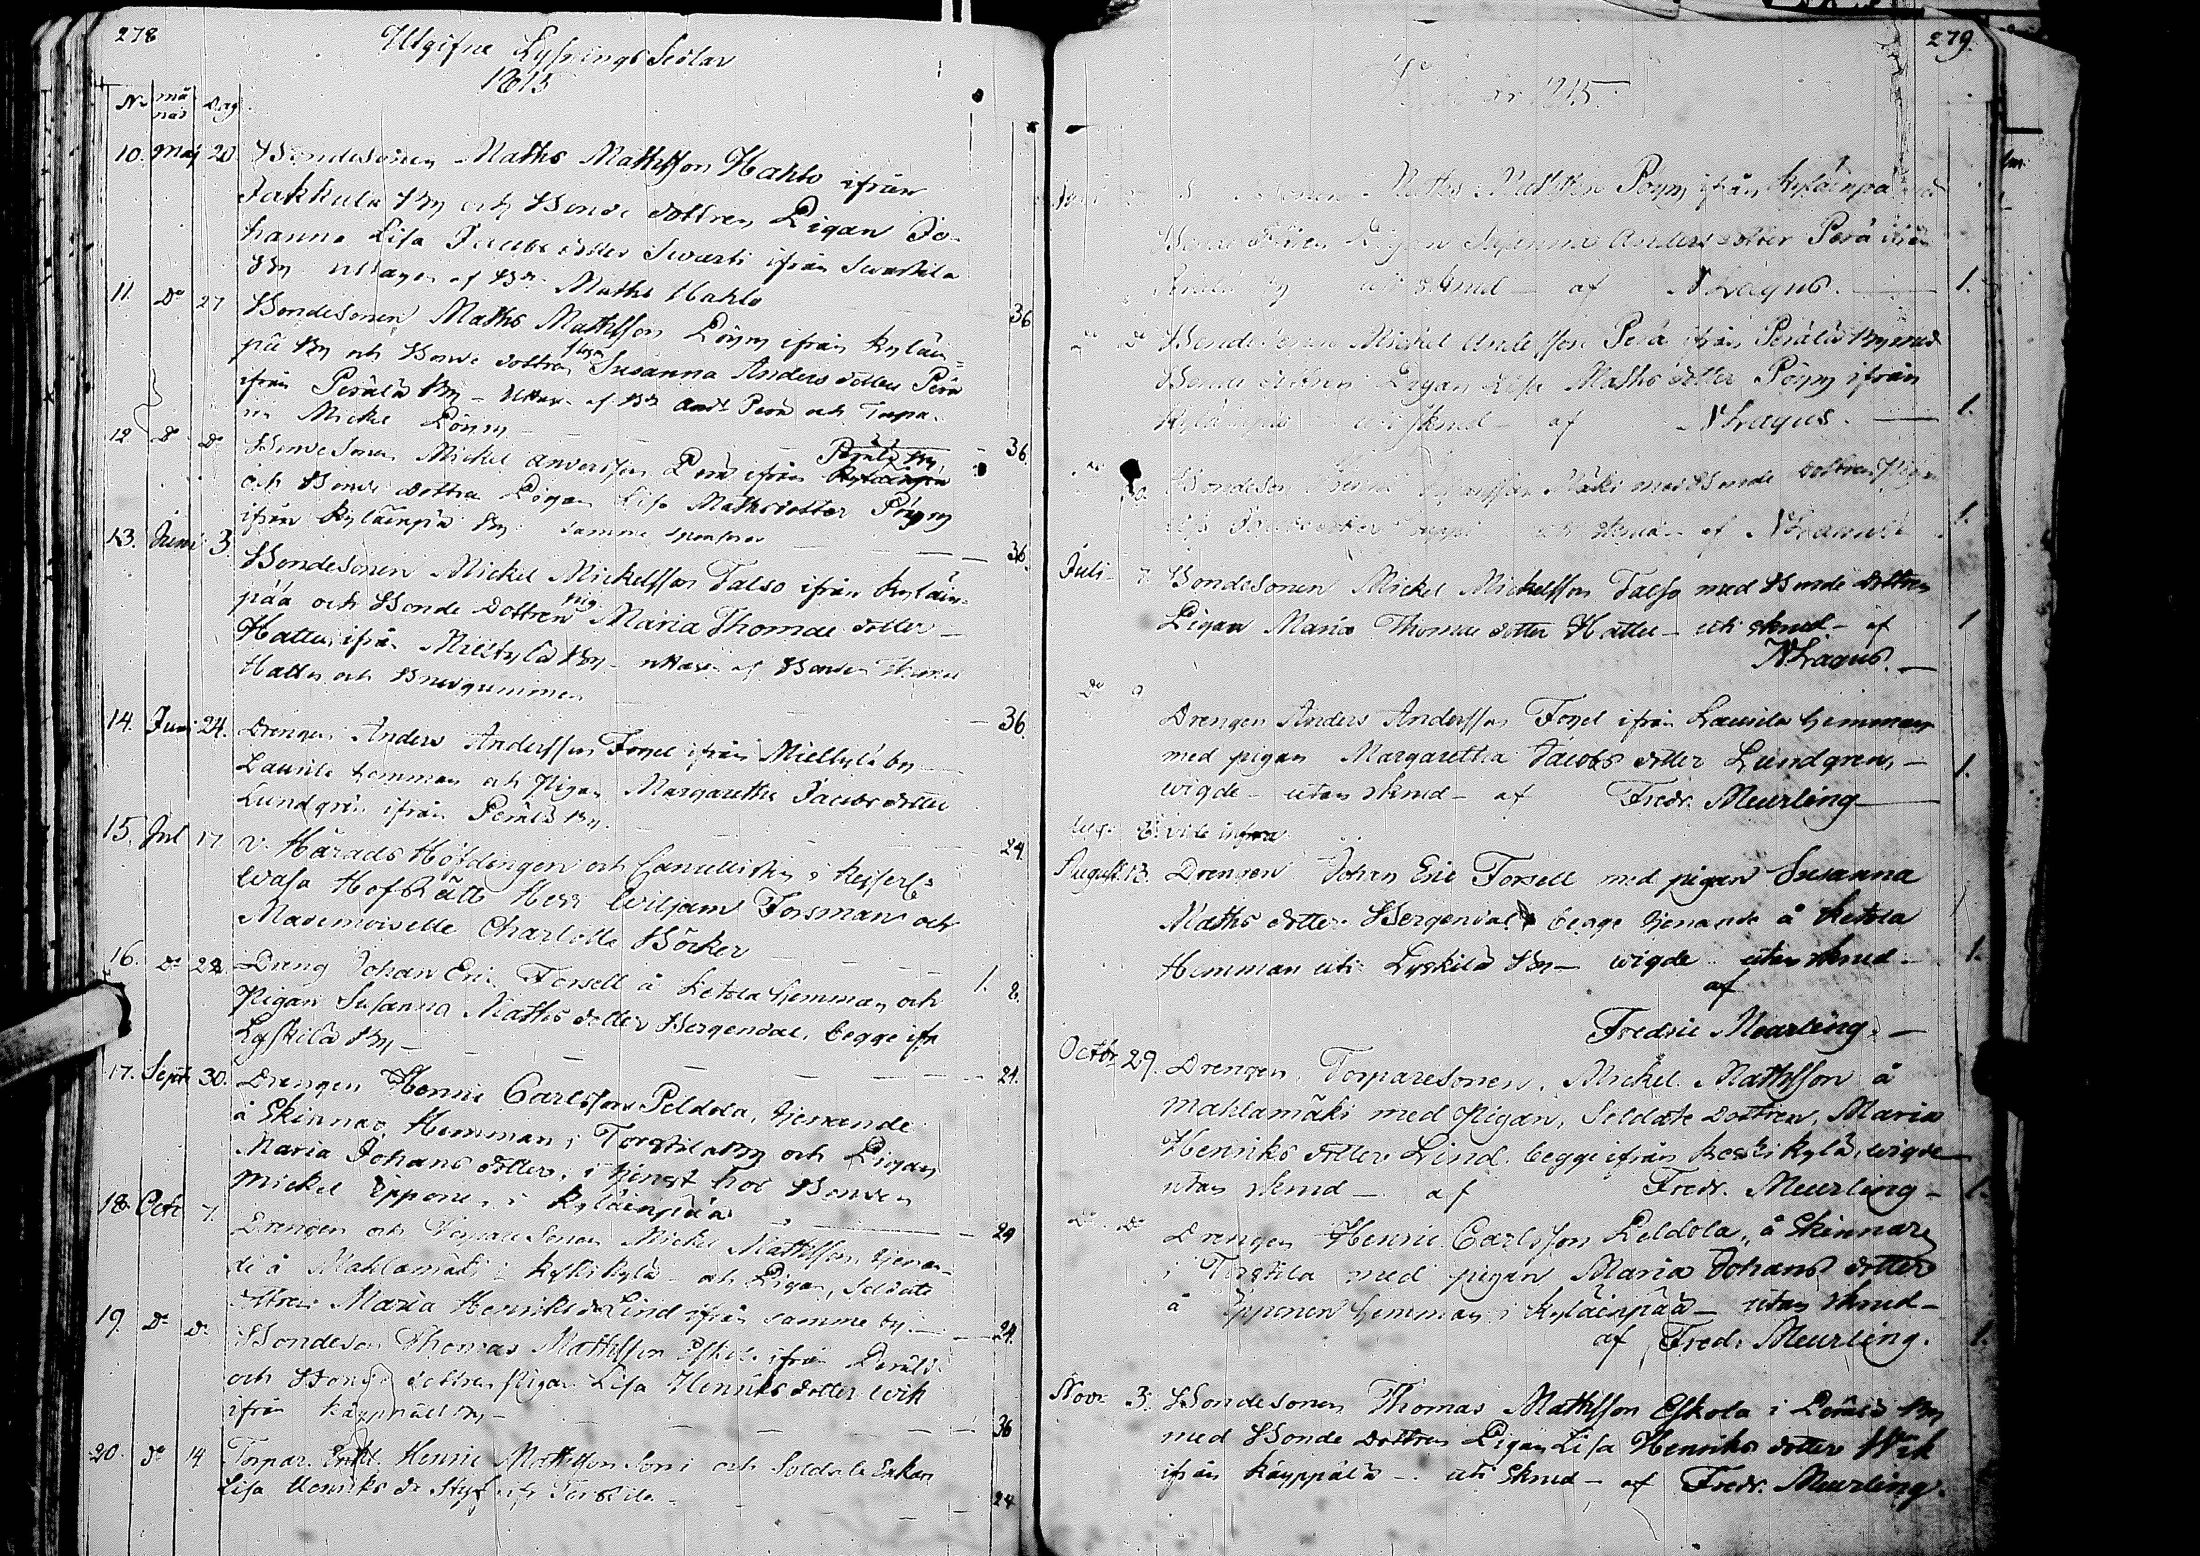 278
Utgifne Lysnings Sedlar
1815
No månad Dag
10. Maj 20. Bondesonen Maths Mathsson Hahlo ifrån
Jakkula By och Bonde dottren Pigan Jo-
hanna Lisa Jacobs dotter Swarti ifrån Swartila
By uttagen af Bn Maths Hahlo
36
11. Do 27 Bondesonen Maths Mathsson Pöyry ifrån Kyläin=
pä By och Bonde dottren Pigan Susanna Anders dotter Perä
ifrån Perälä By – af Bn And. Perä och
Mickel Pöyry
36.
12 Do Do Bondesonen Mickel Andersson Perä ifrån Kyläinpä Perälä By,
och Bonde dottren Pigan Lisa Mathsdotter Pöyry
ifrån Kyläinpä By. samme sponsorer
36.
13. Juni 3. Bondesonen Mickel Mickelsson Talso ifrån Kyläin-
pää och Bonde Dottren pig. Maria Thomae dotter
Hattu, ifrån Mieltylä By – af Bonden Thomas
Hattu och Brudgummen
36.
14. Juni 24. Drengen Anders Andersson Fogel ifrån Mieltylä by
Laurila hemman och Pigan Margaretha Jacobs dotter
Lundgrén ifrån Perälä By.
24.
15. Jul 17 v. Härads Höfdingen och Cancellisten i Kejserl.
Wasa HofRätt Herr Wiljam Forsman och
Mademoiselle Charlotta Böcker
1. 8.
16. Do 22 Dreng Johan Eric Forsell å Ketola hemman och
Pigan Susanna Maths dotter Bergendal, begge ifr
Lyskilä By –
24.
17. Sept 30. Drengen Henric Carlsson Peldola, tjenande
å Skinnar Hemman i Torstila By och Pigan
Maria Johans dotter, i tjenst hos Bonden
Mickel Ipponen i Kyläinpää
24
18. Octr 7. Drengen och Torpare Sonen Mickel Mathsson, tjenan-
de å Mahlamäki i Koskikylä – och Pigan, Soldate
dottren Maria Henriks dr Lind ifrån samme by –
24.
19. Do Do Bondeson Thomas Mathsson Eskola ifrån Perälä
och Bonde dottren Pigan Lisa Henriks dotter Wik
ifrån Käyppälä By –
36
20. Do 14 Torpar. Enkl. Henric Mathsson Sorri och Soldats Enkan
Lisa Henriks dr Styf ifr Torstila –
24
279.
år 1815.
Maths Mathsson Pöyry ifrån Kyläinpä
Bonde dottren Pigan Susanna Anders dotter Perä ifrån
Perälä By uti skrud – af N Lagus. – 1.
Do Bondesonen Mickel Andersson Perä ifrån Perälä By med
Bonde dottren Pigan Lisa Maths dotter Pöyry ifrån
Kyläinpä – uti skrud – af N Lagus. – 1.
Bondeson Mäki med Bonde dottren Pigan
uti skrud – af N Lagus 1.
Juli 7. Bondesonen Mickel Mickelsson Talso med Bonde dottren
Pigan Maria Thomae dotter Hattu – uti skrud – af 1
N Lagus. –
Do 9
Drengen Anders Andersson Fogel ifrån Laurila hemman
med pigan Margaretha Jacobs dotter Lundgren, – 1.
wigde – utan skrud – af Fredr. Meurling
Aug. 8. vide infra
August. 13. Drengen Johan Eric Forsell med pigan Susanna
Maths dotter Bergendal, begge tjenande å Ketola
Hemman uti Lyskilä By – wigde utan skrud – 1.
af
Fredric Meurling. –
Octbr 29. Drengen, Torparesonen, Mickel Mathsson å
Mahlamäki med Pigan, Soldate Dottren, Maria
Henriks dotter Lind, begge ifrån Koskikylä, wigde
utan skrud – af Fredr. Meurling – 1.
Do Do Drengen Henric Carlsson Peldola, å Skinnare
i Torstila med pigan Maria Johans dotter
å Ipponen hemman i Kyläinpää – utan skrud –
af Fredr. Meurling. 1.
Novr 3. Bondesonen Thomas Mathsson Eskola i Perälä By
med Bonde Dottren Pigan Lisa Henriks dotter Wik
ifrån Käyppälä – uti skrud – af Fredr. Meurling.